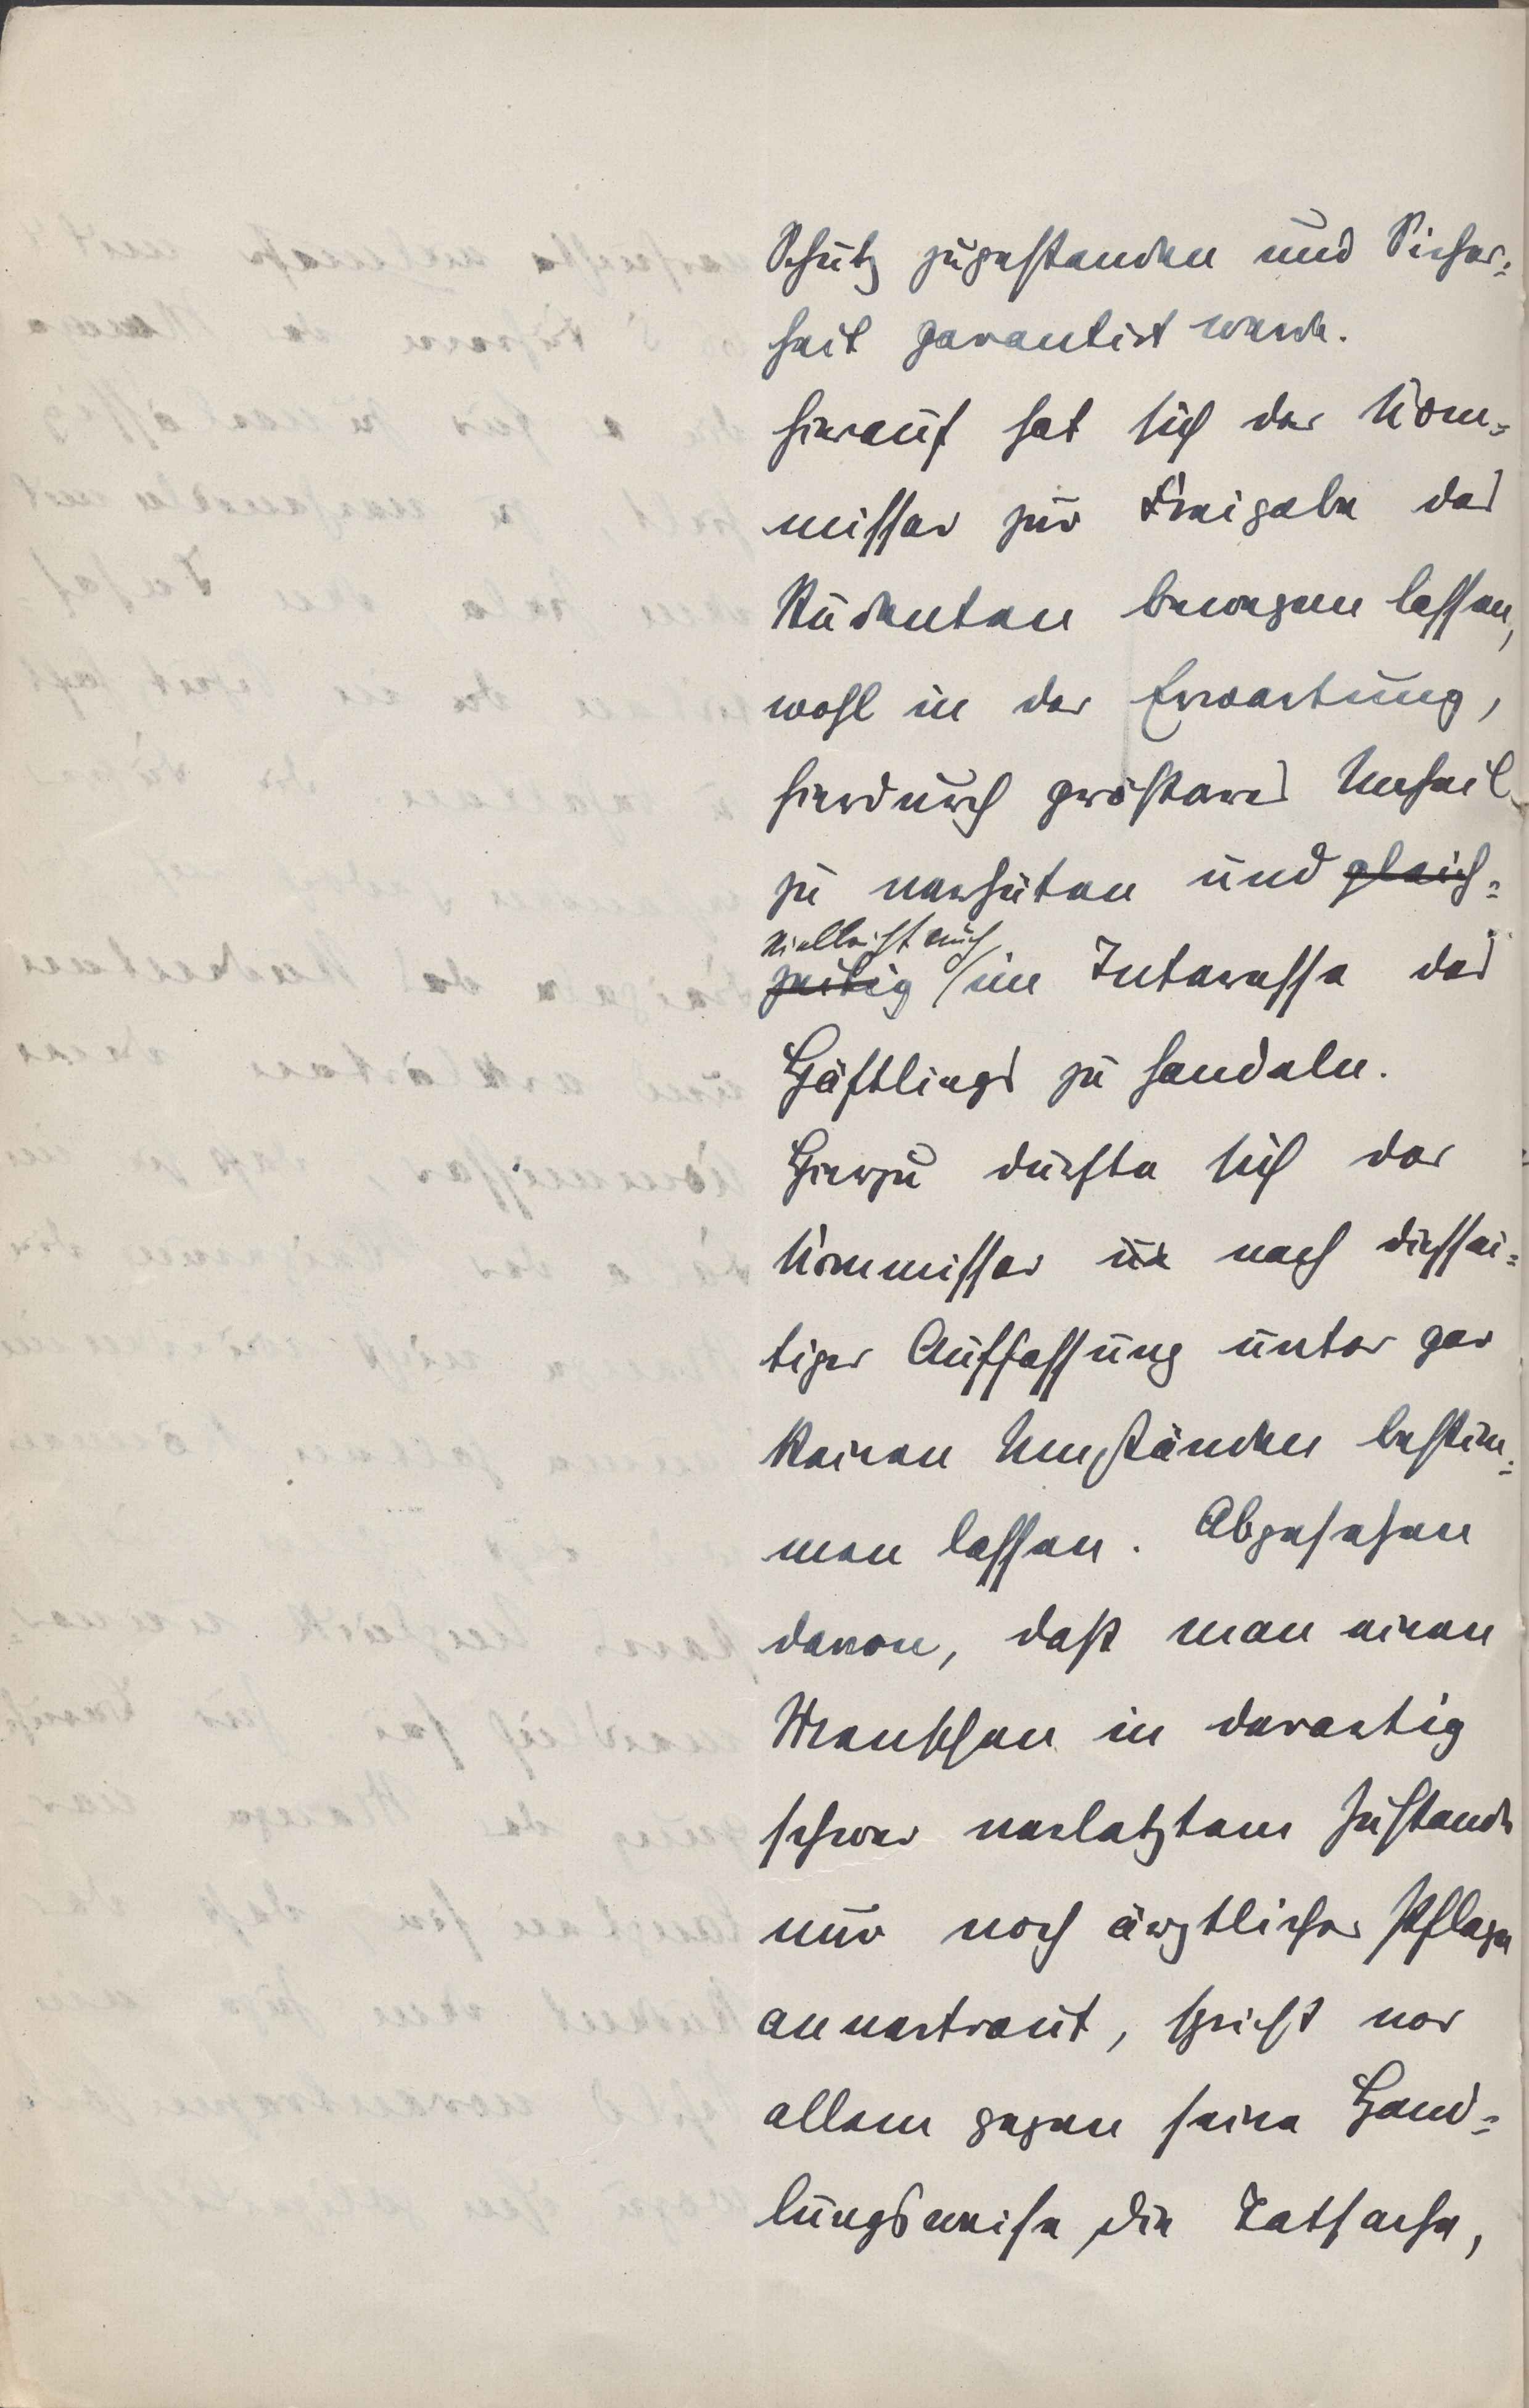 Schutz zugestanden und Sicher-
heit garantirt werde.
hierauf hat sich der Kom-
missar zur Freigabe des
Studenten bewegen lassen,
wohl in der Erwartung,
hierdurch größeres Unheil
zu verhüten und gleich-
vielleicht auch
zeitig im Interesse des
Häftlings zu handeln.
Hierzu durfte sich der
Kommissar nach diessei-
tiger Auffassung unter gar
keinen Umständen bestim-
men lassen. Abgesehen
davon, daß man einen
Menschen in derartig
schwer verletztem Zustande
nur noch ärztlicher Pflege
anvertraut, spricht vor
allem gegen seine Hand-
lungsweise die Tatsache,